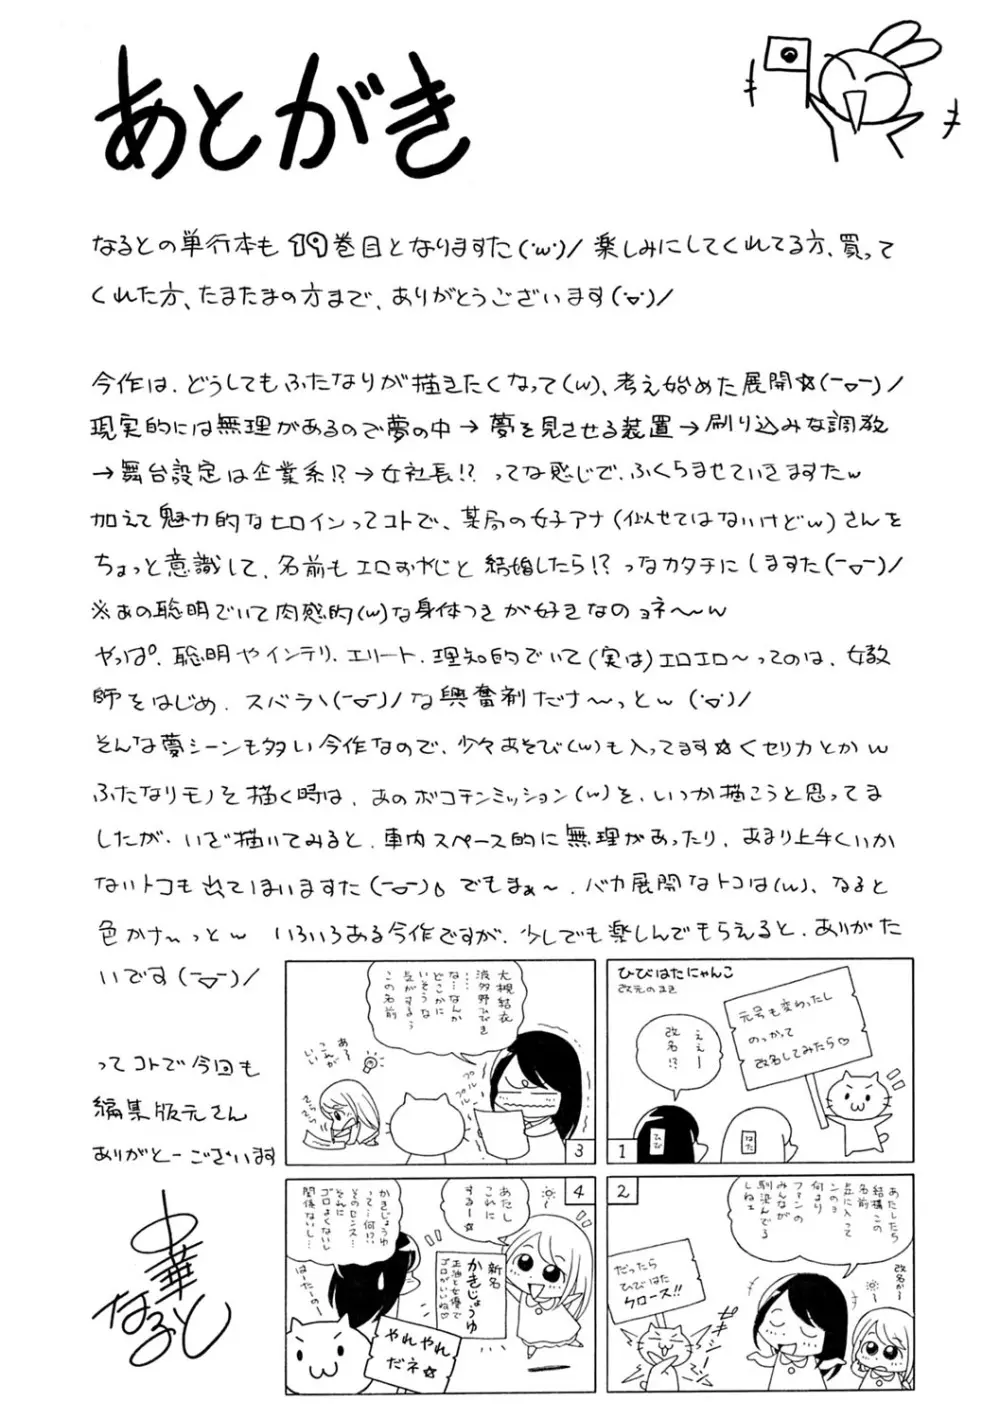 あとがき
なるとの単行本も19巻目となりますた(・w・)ノ 楽しみにしてくれてる方、買って
くれた方、たまたまの方まで、ありがとうございます(・▽・)ノ
今作は、どうしてもふたなりが描きたくなって(w)、考え始めた展開☆(ー▽ー)ノ
現実的には無理があるので夢の中→夢を見させる装置→刷り込みな調教
→舞台設定は企業系!?→女社長!? ってな感じで、ふくらませていきますたw
加えて魅力的なヒロインってコトで、某局の女子アナ(似せてはないけどw)さんを
ちょっと意識して、名前もエロおやじと結婚したら!? っなカタチにしますた(ー▽ー)ノ
※あの聡明でいて肉感的(w)な身体つきが好きなのョネ〜〜w
やっぱ、聡明やインテリ、エリート、理知的でいて(実は)エロエロ〜ってのは、女教
師をはじめ、スバラヽ(ー▽ー)ノな興奮剤だナ〜っとw (・▽・)ノ
そんな夢シーンも多い今作なので、少々あそび(w)も入ってます☆くセリカとかw
ふたなりモノを描く時は、あのボコチンミッション(w)を、いつか描こうと思ってま
したが、いざ描いてみると、車内スペース的に無理があったり、あまり上手くいか
ないトコも出てしまいますた(ー▽ー)。でもまぁ〜、バカ展開なトコは(w)、なると
色かナ〜っとw いろいろある今作ですが、少しでも楽しんでもらえると、ありがた
いです(ー▽ー)ノ
ってコトで今回も
編集版元さん
ありがとーございます
中華なると
ひびはたにゃんこ
改元のまき
元号も変わったし
のっかって
改名してみたら♡
ええー
改名!?
ひび
はた
1
あたしたち
結構この
名前
気に入って
ンのョ
何より
ファンの
みんなが
馴染んでる
しねェ
改名かー
だったら
ひびはた
クロース!!
シーッ
2
大槻結衣
波多野ひびき
……
な…なんか
どこかに
いそうな
気がするぅ
この名前
プルプル
あるっ
こんなが
いい
3
あたし
これに
するー☆
新名
かきじょうゆ
正油と女優で
ゴロがいいね♡
かきじょうゆ
って…何!?
そのセンス…
それに
ゴロよくないし
関係ないし…
はったーのー
やれやれ
だネ☆
4